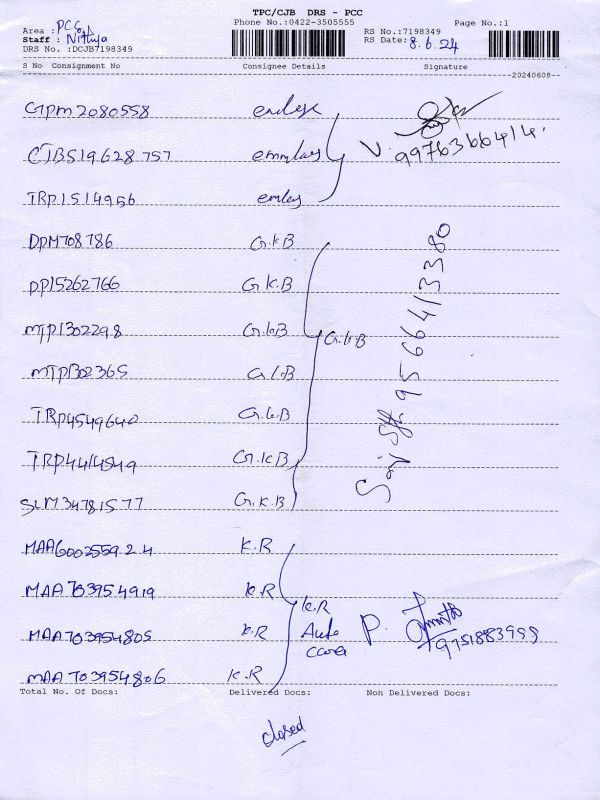 TPC/CJB DRS - PCC
Phone No.:0422-3505555 Page No.:1
Area : PCC
Staff : Nithya
DRS No. :DCJB7198349
RS No.:7198349
RS Date: 8.6.24
S No Consignment No Consignee Details Signature
20240608
GTPM2080558
CJB519628757
TRP1514956
9976366414
DPM708786 G.K.B
PPI5262766 G.K.B
MTP1302298 G.K.B
G.K.B
MTP1302365 G.K.B
TRP4549640 G.K.B
TRP4414549 G.K.B
SLM34781577 G.K.B
9566413380
MAA600255924 K.R
MAA703954919 K.R
K.R
MAA703954805 K.R Auto P.
9751883999
MAA703954806 K.R
Total No. Of Docs: Delivered Docs: Non Delivered Docs:
closed